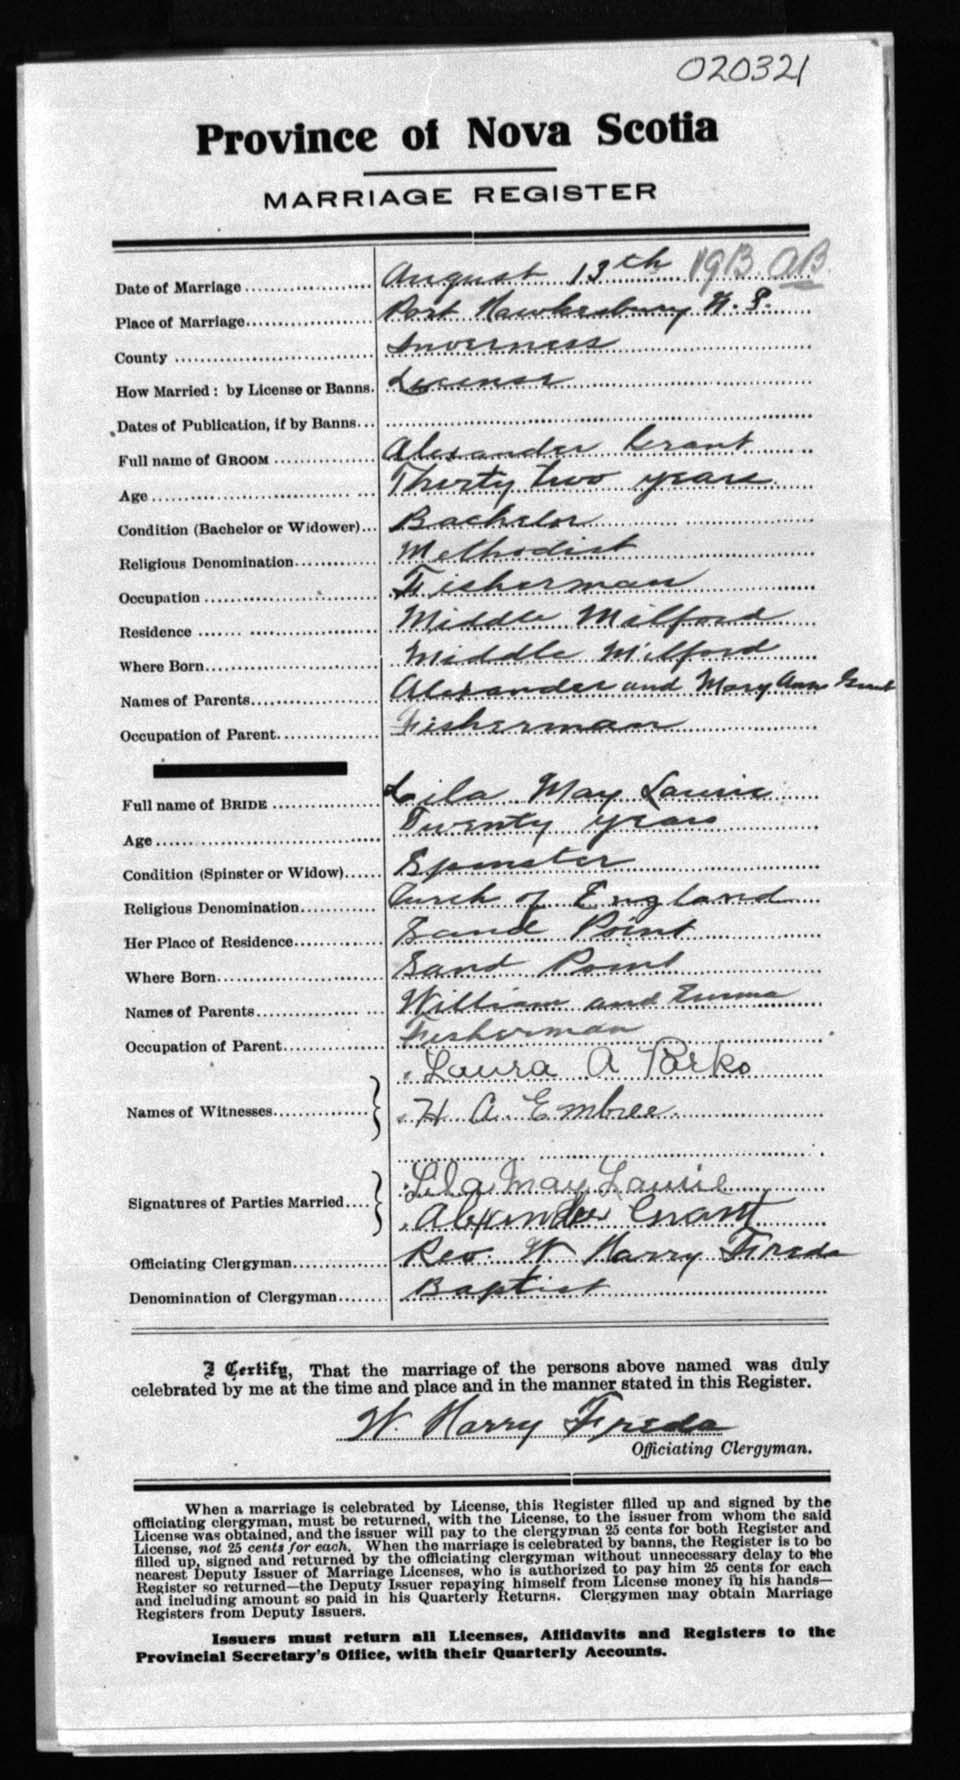 020321
Province of Nova Scotia
MARRIAGE REGISTER
Date of Marriage August 13th 1913. AB.
Place of Marriage Port Hawkesbury N. S.
County Inverness
How Married: by License or Banns. License
Dates of Publication, if by Banns
Full name of GROOM Alexander Grant
Age Thirty two years
Condition (Bachelor or Widower) Bachelor
Religious Denomination Methodist
Occupation Fisherman
Residence Middle Milford
Where Born Middle Milford
Names of Parents Alexander and Mary Ann Grant
Occupation of Parent Fisherman
Full name of BRIDE Lila May Laurie
Age Twenty years
Condition (Spinster or Widow) Spinster
Religious Denomination Curch of England
Her Place of Residence Sand Point
Where Born Sand Point
Names of Parents William and Emma
Occupation of Parent Fisherman
Names of Witnesses Laura A Parks
H A Embree
Signatures of Parties Married Lila May Laurie
Alexander Grant
Officiating Clergyman Rev. W Harry Freda
Denomination of Clergyman Baptist
I Certify, That the marriage of the persons above named was duly
celebrated by me at the time and place and in the manner stated in this Register.
W. Harry Freda
Officiating Clergyman.
When a marriage is celebrated by License, this Register filled up and signed by the
officiating clergyman, must be returned, with the License, to the issuer from whom the said
License was obtained, and the issuer will pay to the clergyman 25 cents for both Register and
License, not 25 cents for each. When the marriage is celebrated by banns, the Register is to be
filled up, signed and returned by the officiating clergyman without unnecessary delay to the
nearest Deputy Issuer of Marriage Licenses, who is authorized to pay him 25 cents for each
Register so returned—the Deputy Issuer repaying himself from License money in his hands—
and including amount so paid in his Quarterly Returns. Clergymen may obtain Marriage
Registers from Deputy Issuers.
Issuers must return all Licenses, Affidavits and Registers to the
Provincial Secretary's Office, with their Quarterly Accounts.